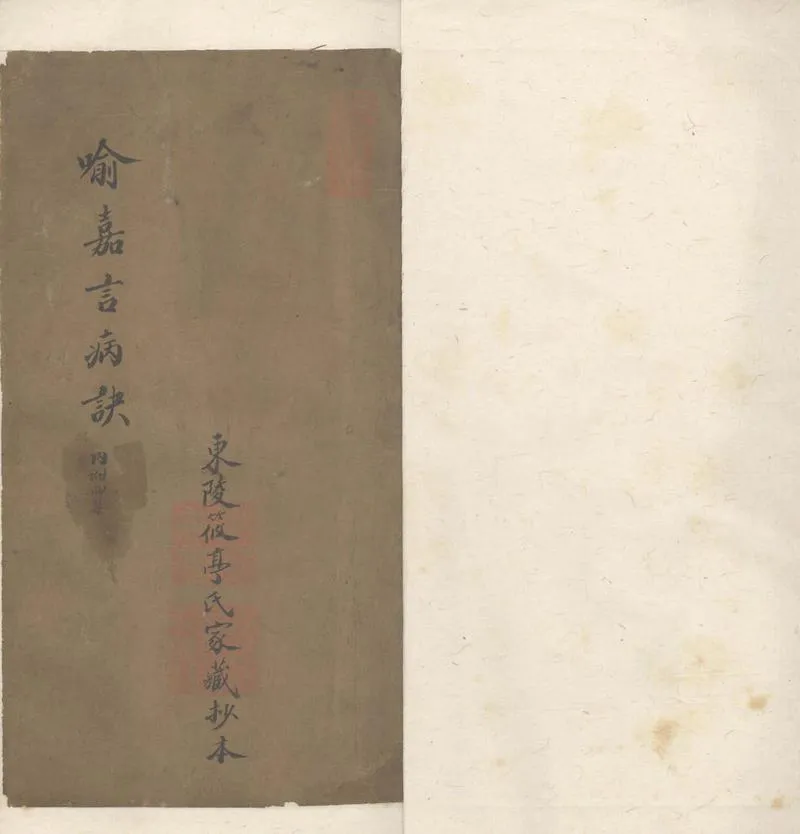 東陵筱亭氏家藏抄本
喻嘉言病訣
內附